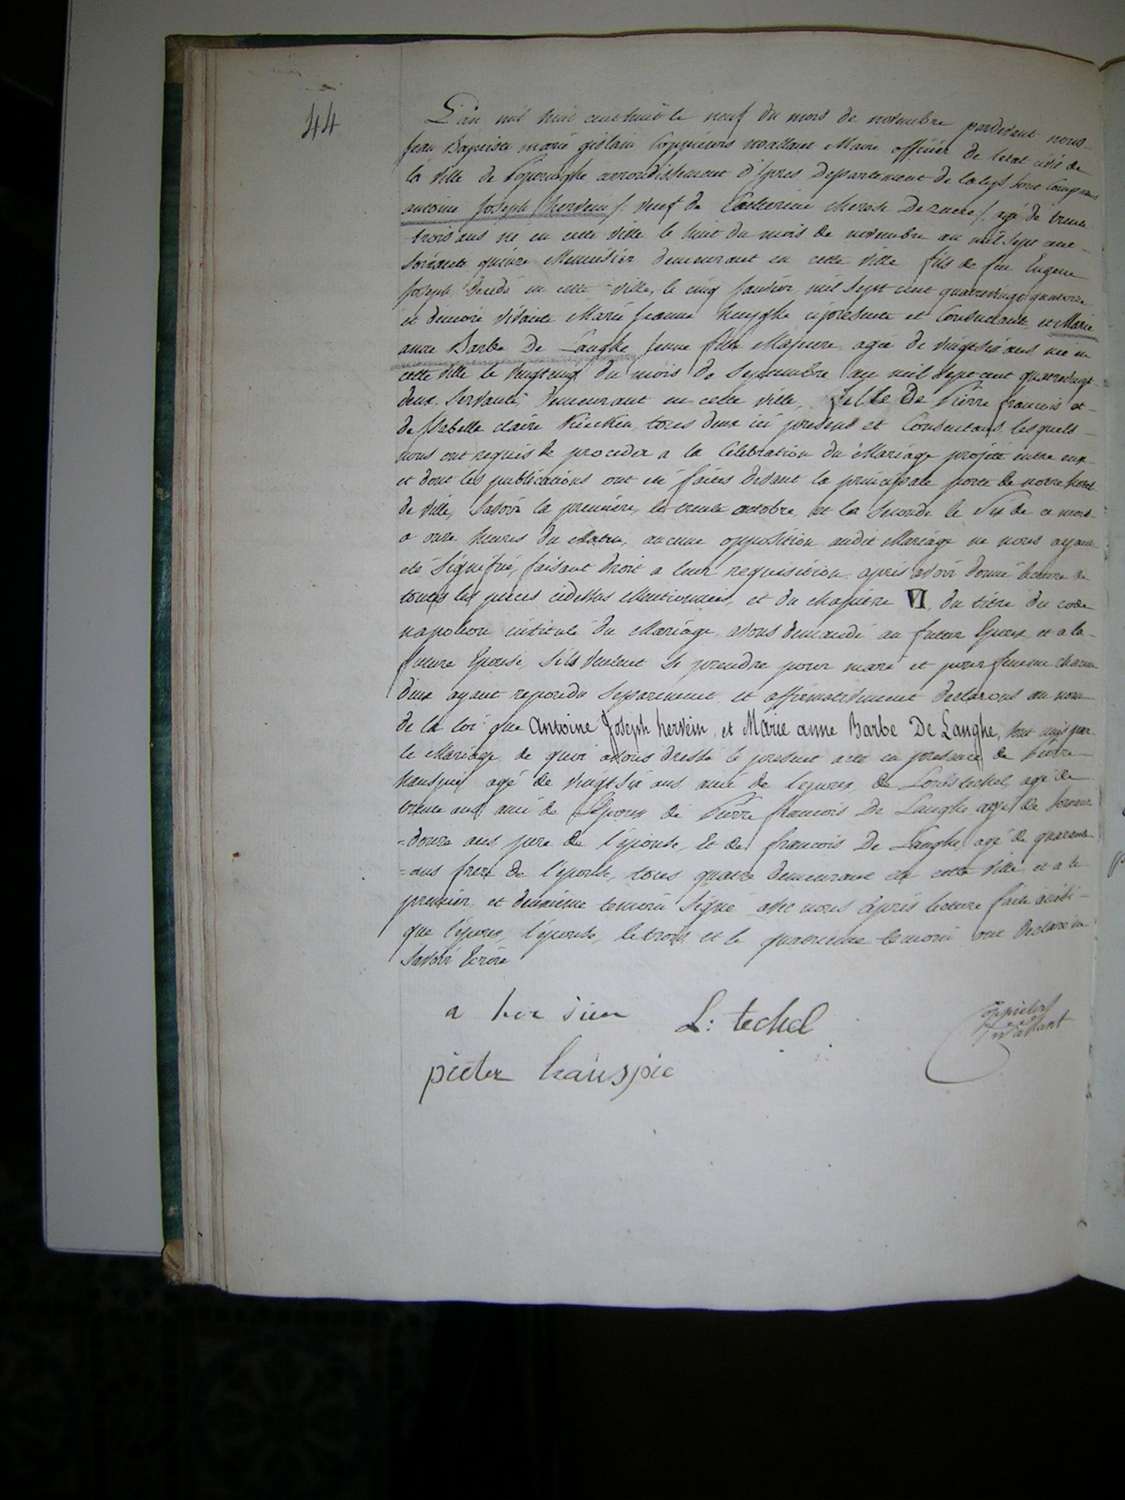 44
L'an mil huit cent huit le neuf du mois de novembre pardevant nous
Jean Baptiste marie gislain Coppieters wallant Maire officier de l'etat civil de
la ville de Poperinghe arrondissement d'Ipres Departement de la Lys sont Comparus
antoine Joseph hervein /: veuf de Catherine therese :/ agé de trente
trois ans né en cette ville le huit du mois de novembre an mil sept cent
soixante quinze Menusier demeurant en cette ville fils de feu Eugene
Joseph décédé en cette ville, le cinq Janvier mil sept cent quatrevingt quatorze
et encore vivante Marie Jeanne cipresente et Consentante et Marie
anne Barbe De Langhe jeune fille Majeure agée de vingt six ans née en
cette ville le vingt cinq du mois de Septembre an mil sept cent quatrevingt
deux Servante demeurant en cette ville, fille De Pierre francois et
de Isabelle claire tous deux ici présens et Consentans, lesquels
nous ont requis de proceder a la Célébration du Mariage projetté entre eux
et dont les publications ont été faites devant la principale porte de notre hotel
de ville, Savoir la premiere, le trente octobre, et la Seconde le Six de ce mois
a onze heures du Matin, aucune opposition audit Mariage ne nous ayant
été Signifiée, faisant droit a leur requisition, après avoir donné lecture de
toutes les pieces cidessus Mentionnées, et du chapitre VI, du titre du code
napoleon intitulé du Mariage, avons demandé au futur Epoux et a la
future Epouse, s'ils veulent se prendre pour mari et pour femme, chacun
d'eux ayant repondu Separement et affirmativement declarons au nom
de la loi que Antoine Joseph hervein, et Marie anne Barbe De Langhe, sont unis par
le Mariage, de quoi avons dressé le present acte en presence de Pierre
hauspie agé de vingt six ans ami de l'epoux, de Louis techel, agé de
trente ans ami de l'Epoux de Pierre francois De Langhe agé de soixante
=douze ans pere de l'épouse, et de francois De Langhe agé de quarante
=ans frere de l'epouse, tous quatre demeurant en cette ville et a le
premier et deuxieme temoin Signé avec nous après lecture faite aussi
que l'epoux, l'épouse, le trois et le quatrieme temoin ont declaré ne
Savoir Ecrire
L: techel
Coppieters
wallant
pieter hauspie